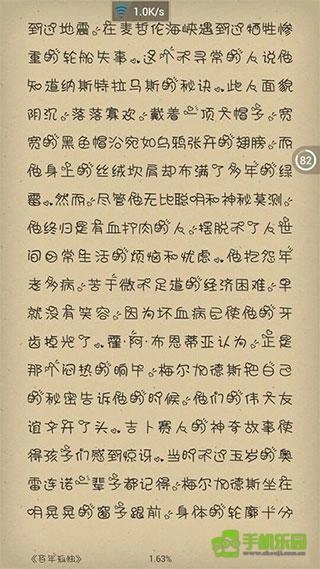 1.0K/s
到过地震，在麦哲伦海峡遇到过牺牲惨
重的轮船失事。这个不寻常的人说他
知道纳斯特拉马斯的秘诀。此人面貌
阴沉，落落寡欢，戴着一顶大帽子，宽
宽的黑色帽沿宛如乌鸦张开的翅膀，而
他身上的丝绒坎肩却布满了多年的绿
霉。然而，尽管他无比聪明和神秘莫测，
他终归是有血打肉的人，摆脱不了人世
间日常生活的烦恼和忧虑。他抱怨年
老多病，苦于微不足道的经济困难，早
就没有笑容，因为坏血病已使他的牙
齿掉光了。霍·阿·布恩蒂亚认为，正是
那个闷热的晌午，梅尔加德斯把自己
的秘密告诉他的时候，他们的伟大友
谊才开了头。吉卜赛人的神奇故事使
得孩子们感到惊讶。当时不过五岁的奥
雷连诺一辈子都记得，梅尔加德斯坐在
明晃晃的窗子跟前，身体的轮廓十分
82
《百年孤独》
1.63%
手机乐园